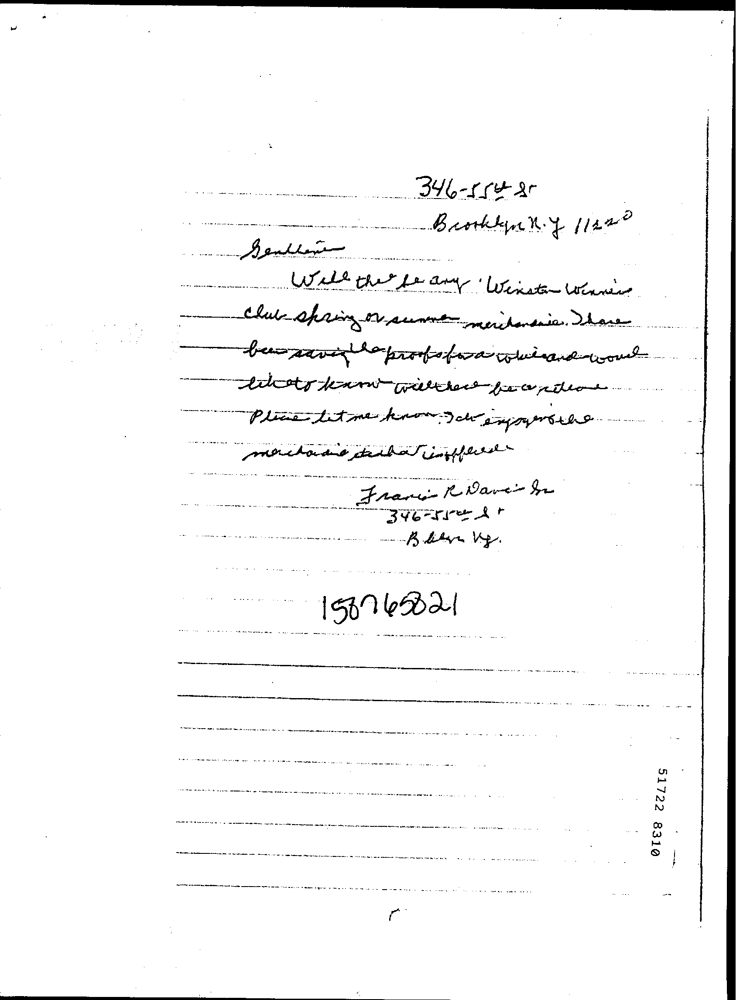 346-55th St
Brooklyn N.Y 11220
Gentlemen
Will there be any "Winston Winners
club spring or summer merchandise. I have
been saving the proofs for a while and would
like to know will there be a
Please let me know. I do enjoy the
merchandise that is offered
Francis R Davis Sr
346-55th St
Bklyn Ny.
158765821
51722 8310